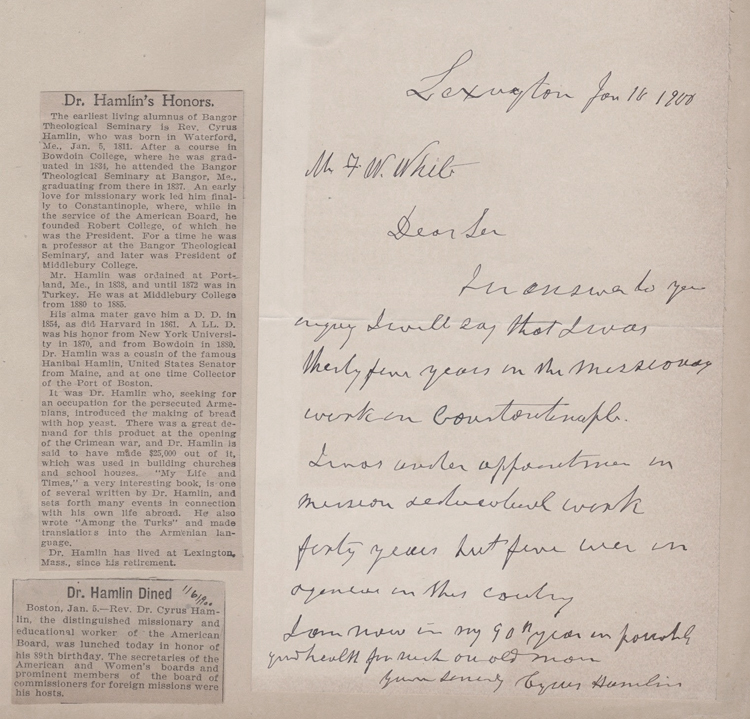 Dr. Hamlin's Honors.
The earliest living alumnus of Bangor
Theological Seminary is Rev. Cyrus
Hamlin, who was born in Waterford,
Me., Jan. 5, 1811. After a course in
Bowdoin College, where he was grad-
uated in 1834, he attended the Bangor
Theological Seminary at Bangor, Me.,
graduating from there in 1837. An early
love for missionary work led him final-
ly to Constantinople, where, while in
the service of the American Board, he
founded Robert College, of which he
was the President. For a time he was
a professor at the Bangor Theological
Seminary, and later was President of
Middlebury College.
Mr. Hamlin was ordained at Port-
land, Me., in 1838, and until 1872 was in
Turkey. He was at Middlebury College
from 1880 to 1885.
His alma mater gave him a D. D. in
1854, as did Harvard in 1861. A LL. D.
was his honor from New York Universi-
ty in 1870, and from Bowdoin in 1880.
Dr. Hamlin was a cousin of the famous
Hanibal Hamlin, United States Senator
from Maine, and at one time Collector
of the Port of Boston.
It was Dr. Hamlin who, seeking for
an occupation for the persecuted Arme-
nians, introduced the making of bread
with hop yeast. There was a great de-
mand for this product at the opening
of the Crimean war, and Dr. Hamlin is
said to have made $25,000 out of it,
which was used in building churches
and school houses. "My Life and
Times," a very interesting book, is one
of several written by Dr. Hamlin, and
sets forth many events in connection
with his own life abroad. He also
wrote "Among the Turks" and made
translations into the Armenian lan-
guage.
Dr. Hamlin has lived at Lexington,
Mass., since his retirement.
Dr. Hamlin Dined 1/6/1900
Boston, Jan. 5.—Rev. Dr. Cyrus Ham-
lin, the distinguished missionary and
educational worker of the American
Board, was lunched today in honor of
his 89th birthday. The secretaries of the
American and Women's boards and
prominent members of the board of
commissioners for foreign missions were
his hosts.
Lexington Jan 16 1900
Mr F. W. White
Dear Sir
In answer to your
inquiry I will say that I was
thirty five years in the missionary
work in Constantinople.
I was under appointment in
mission educational work
forty years but five were in
agencies in this country
I am now in my 90th year in possibly
good health for such an old man
Yours sincerely Cyrus Hamlin